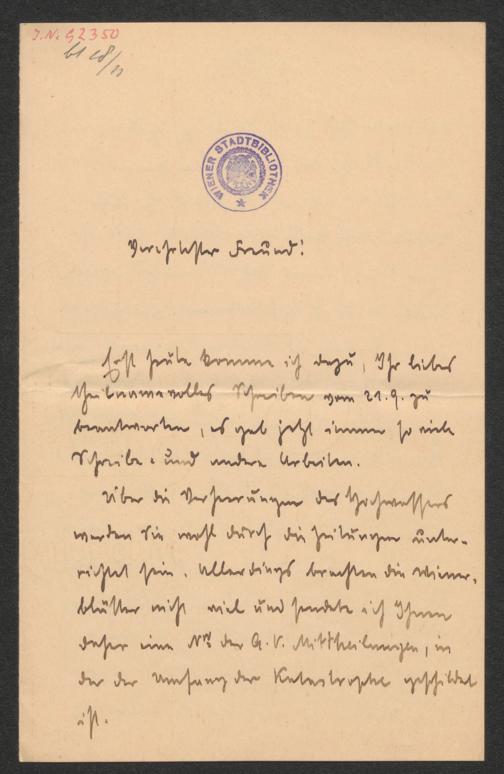 J.N. 92350
bl 28/11
WIENER STADTBIBLIOTHEK
Verehrtester Freund!
Erst heute komme ich dazu, Ihr liebes
theilnamevolles Schreiben vom 21.9. zu
beantworten, es gab jetzt immer so viele
Schreibe- und andere Arbeiten.
Über die Verheerungen des Hochwassers
werden Sie wohl durch die Zeitungen unter-
richtet sein. Allerdings brachten die Wiener-
blätter nicht viel und sendete ich Ihnen
daher eine Nr. der A. V. Mittheilungen, in
der der Umfang der Katastrophe geschildet
ist.